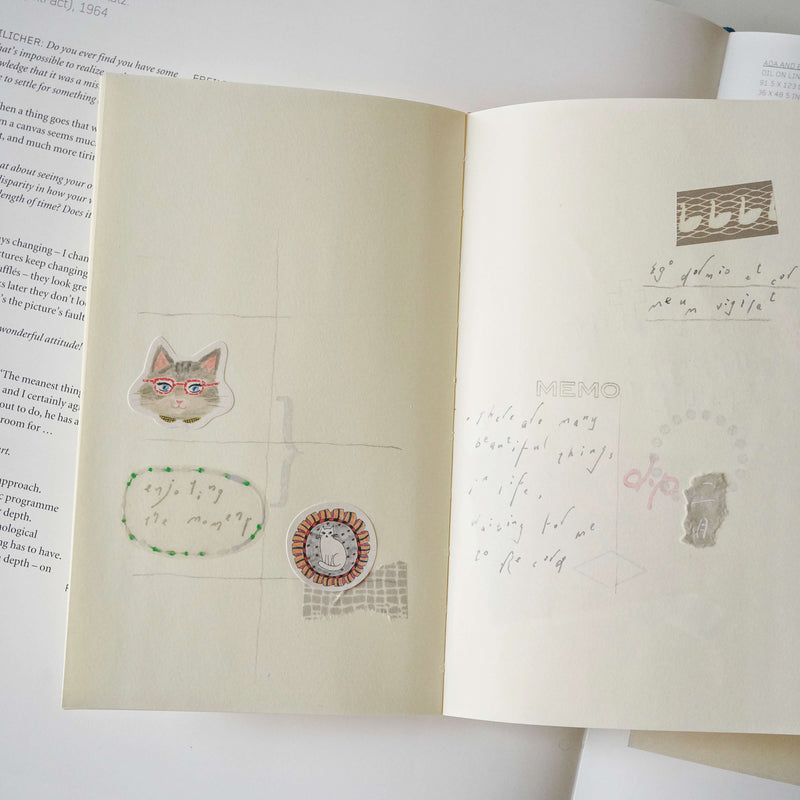 ract), 1964
ILICHER: Do you ever find you have some
hat's impossible to realize
wledge that it was a mis
e to settle for something
hen a thing goes that w
m a canvas seems muc
t, and much more tirin
at about seeing your o
disparity in how your w
length of time? Does it
ys changing – I chan
tures keep changing
ufflés – they look gre
s later they don't lo
's the picture's fault
wonderful attitude!
"The meanest thing
and I certainly ag
out to do, he has a
room for ...
rt.
pproach.
c programme
g depth.
ological
ng has to have.
s depth – on
enjoying
the moment
ADA AND
OIL ON LIN
91.5 X 123
36 X 48.5 IN
ego dormio et cor
meum vigilat
MEMO
there are many
beautiful things
in life,
waiting for me
to Record
dip